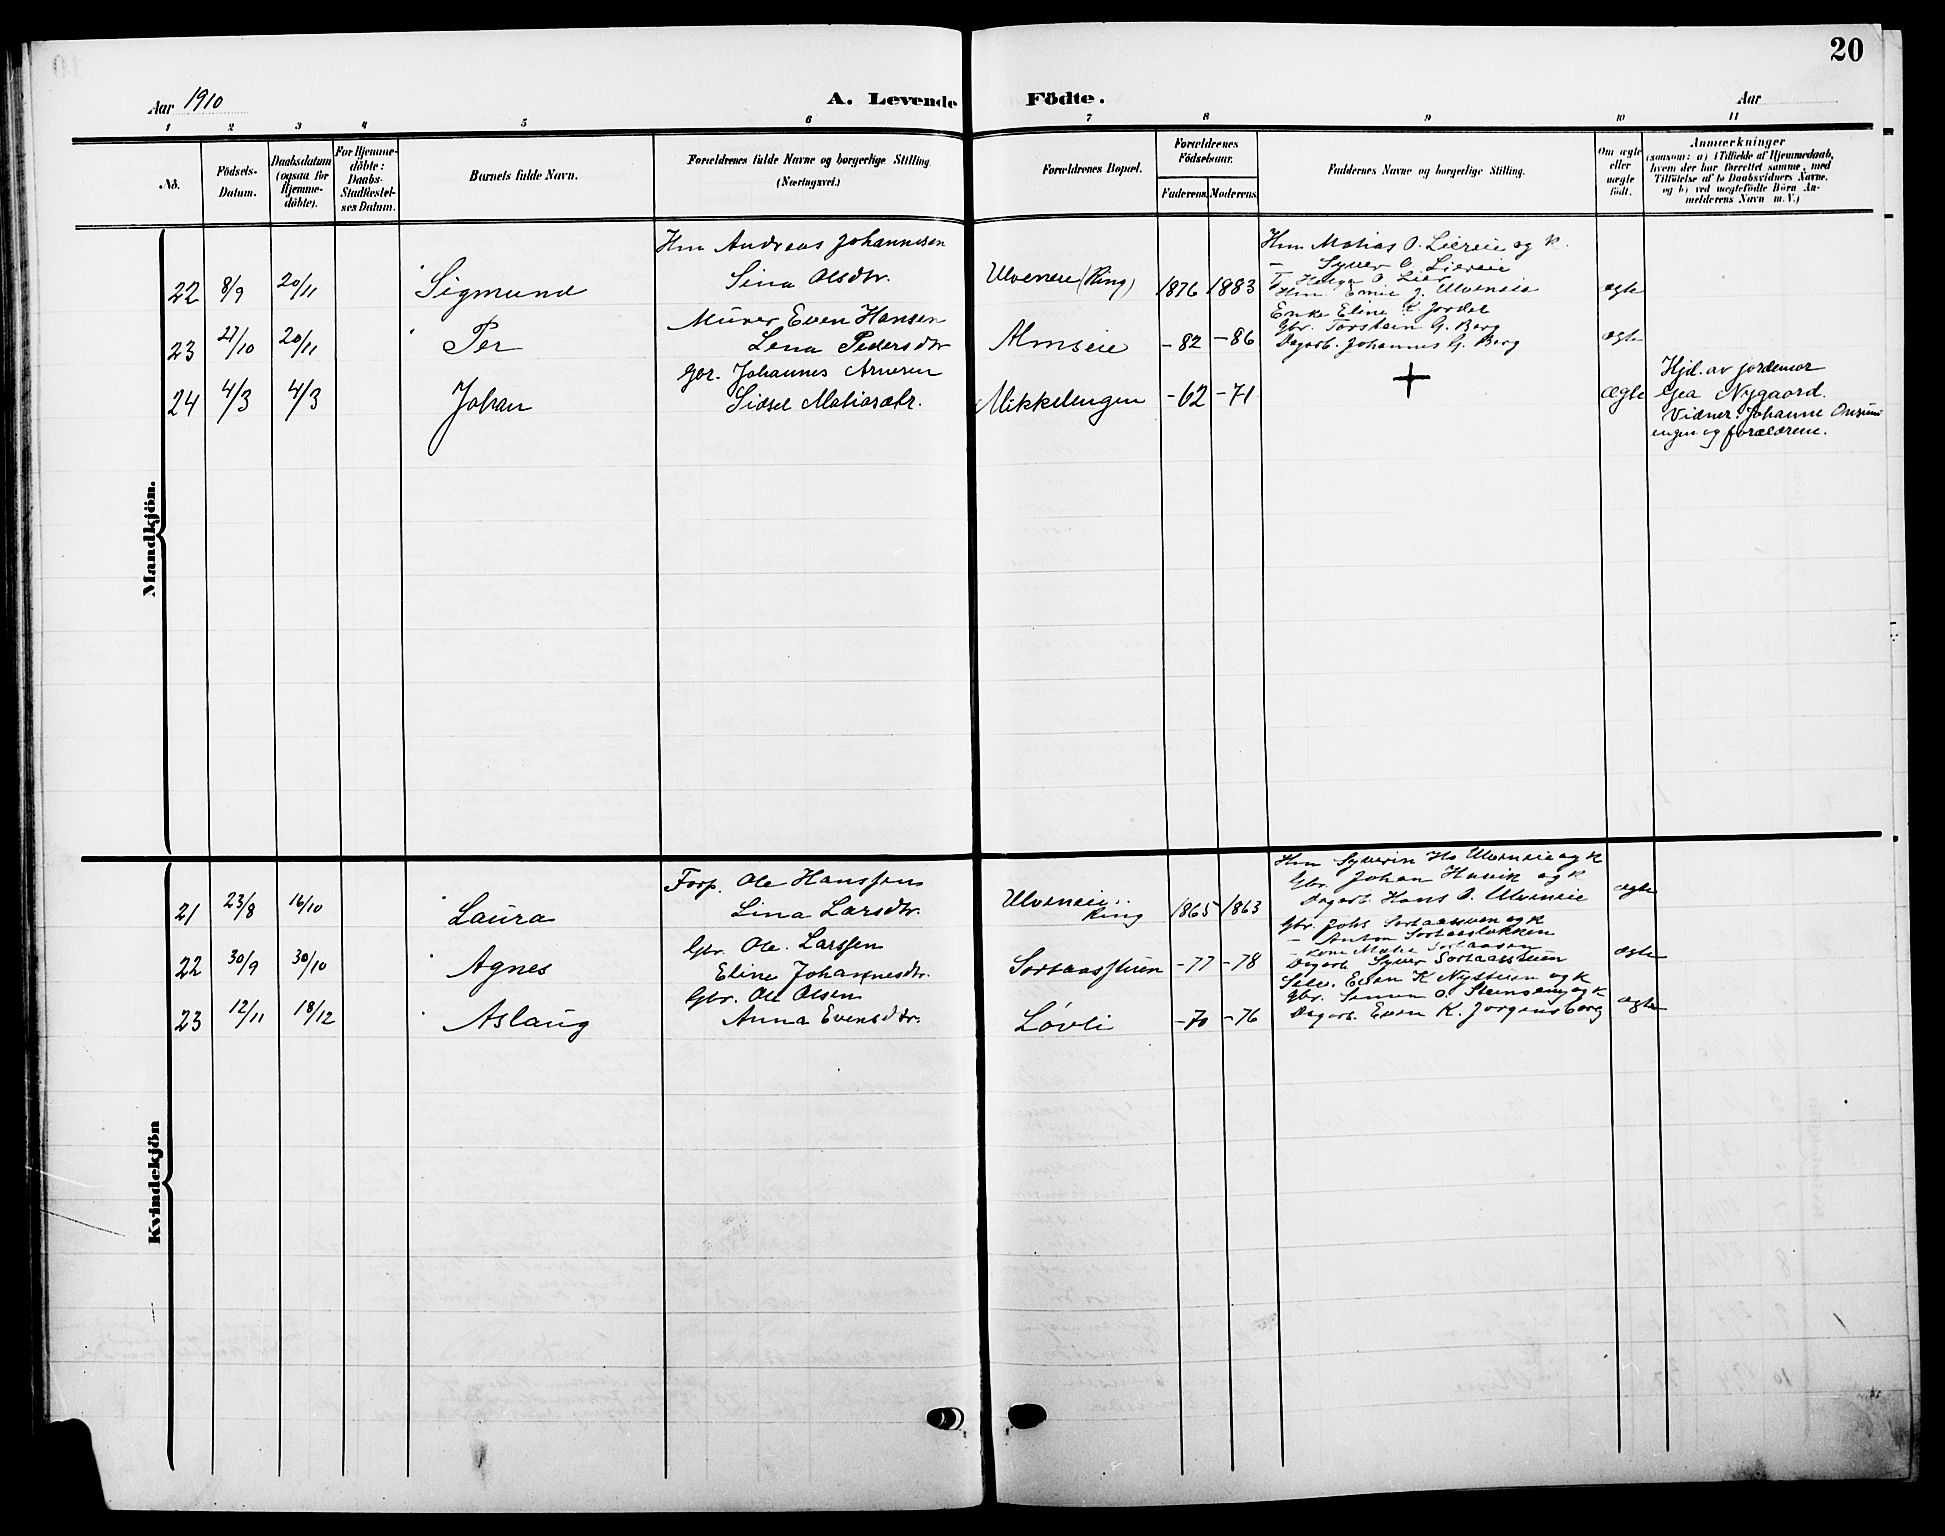 20
Aar 1910
A. Levende Födte.
Aar
1 2 3 4 5 6 7 8 9 10 11
No.
Födsels-Datum.
Daabsdatum (ogsaa for Hjemme-döbte).
For Hjemme-döbte: Daabs-Stadfæstel-ses Datum.
Barnets fulde Navn.
Forældrenes fulde Navne og borgerlige Stilling. (Næringsvei.)
Forældrenes Bopæl.
Forældrenes Födselsaar.
Faderens Moderens
Faddernes Navne og borgerlige Stilling.
Om ægte eller uægte födt.
Anmærkninger
(saasom: a) i Tilfælde af Hjemmedaab,
hvem der har forrettet samme, med
Tilföielse af to Daabsvidners Navne,
og b) ved uægtefödte Börn An-
melderens Navn m. V.)
Mandkjön.
22 8/9 20/11 Sigmund
Hm Andreas Johannesen
Sina Olsdtr.
Ulveneie (Ring) 1876 1883
Hm Matias O. Liereie og k.
– Syver O. Liereie
T. Helga O. Lier
Hm. Emil J. Ulveneie
ægte
23 27/10 20/11 Per
Murer Even Hansen
Lena Pedersdtr
Almseie -82 -86
Enke Eline K. Jordet
Gbr. Torstein G. Berg
Dagarb. Johannes G. Berg
ægte
24 4/3 4/3 Johan
Gbr. Johannes Arnesen
Sidsel Matiasdtr.
Mikkelengen -62 -71
+
ægte
Hjd. av jordemor
Gea Nygaard.
Vidner: Johanne
engen og forældrene.
Kvindekjön
21 23/8 16/10 Laura
Forp. Ole Hanssen
Lina Larsdtr.
Ulveneie Ring 1865 1863
Hm Syverin Hs Ulveneie og k
Gbr. Johan Huvik og k
Dagarb Hans O. Ulveneie
ægte
22 30/9 30/10 Agnes
Gbr. Ole Larssen
Eline Johannesdtr.
Sortaasstuen -77 -78
Gbr. Johs Sortaassveen og k
– Anton Sortaasløkken
– kone Matea Sortaasen
Dagarb. Syver Sortaasstuen
ægte
23 12/11 18/12 Aslaug
Gbr. Ole Olsen
Anna Evensdtr.
Løvli -70 -76
Selv. Even K Nystuen og k
Gbr. Simen O. Steinseng og k
Dagarb. Even K. Jorgensberg
ægte